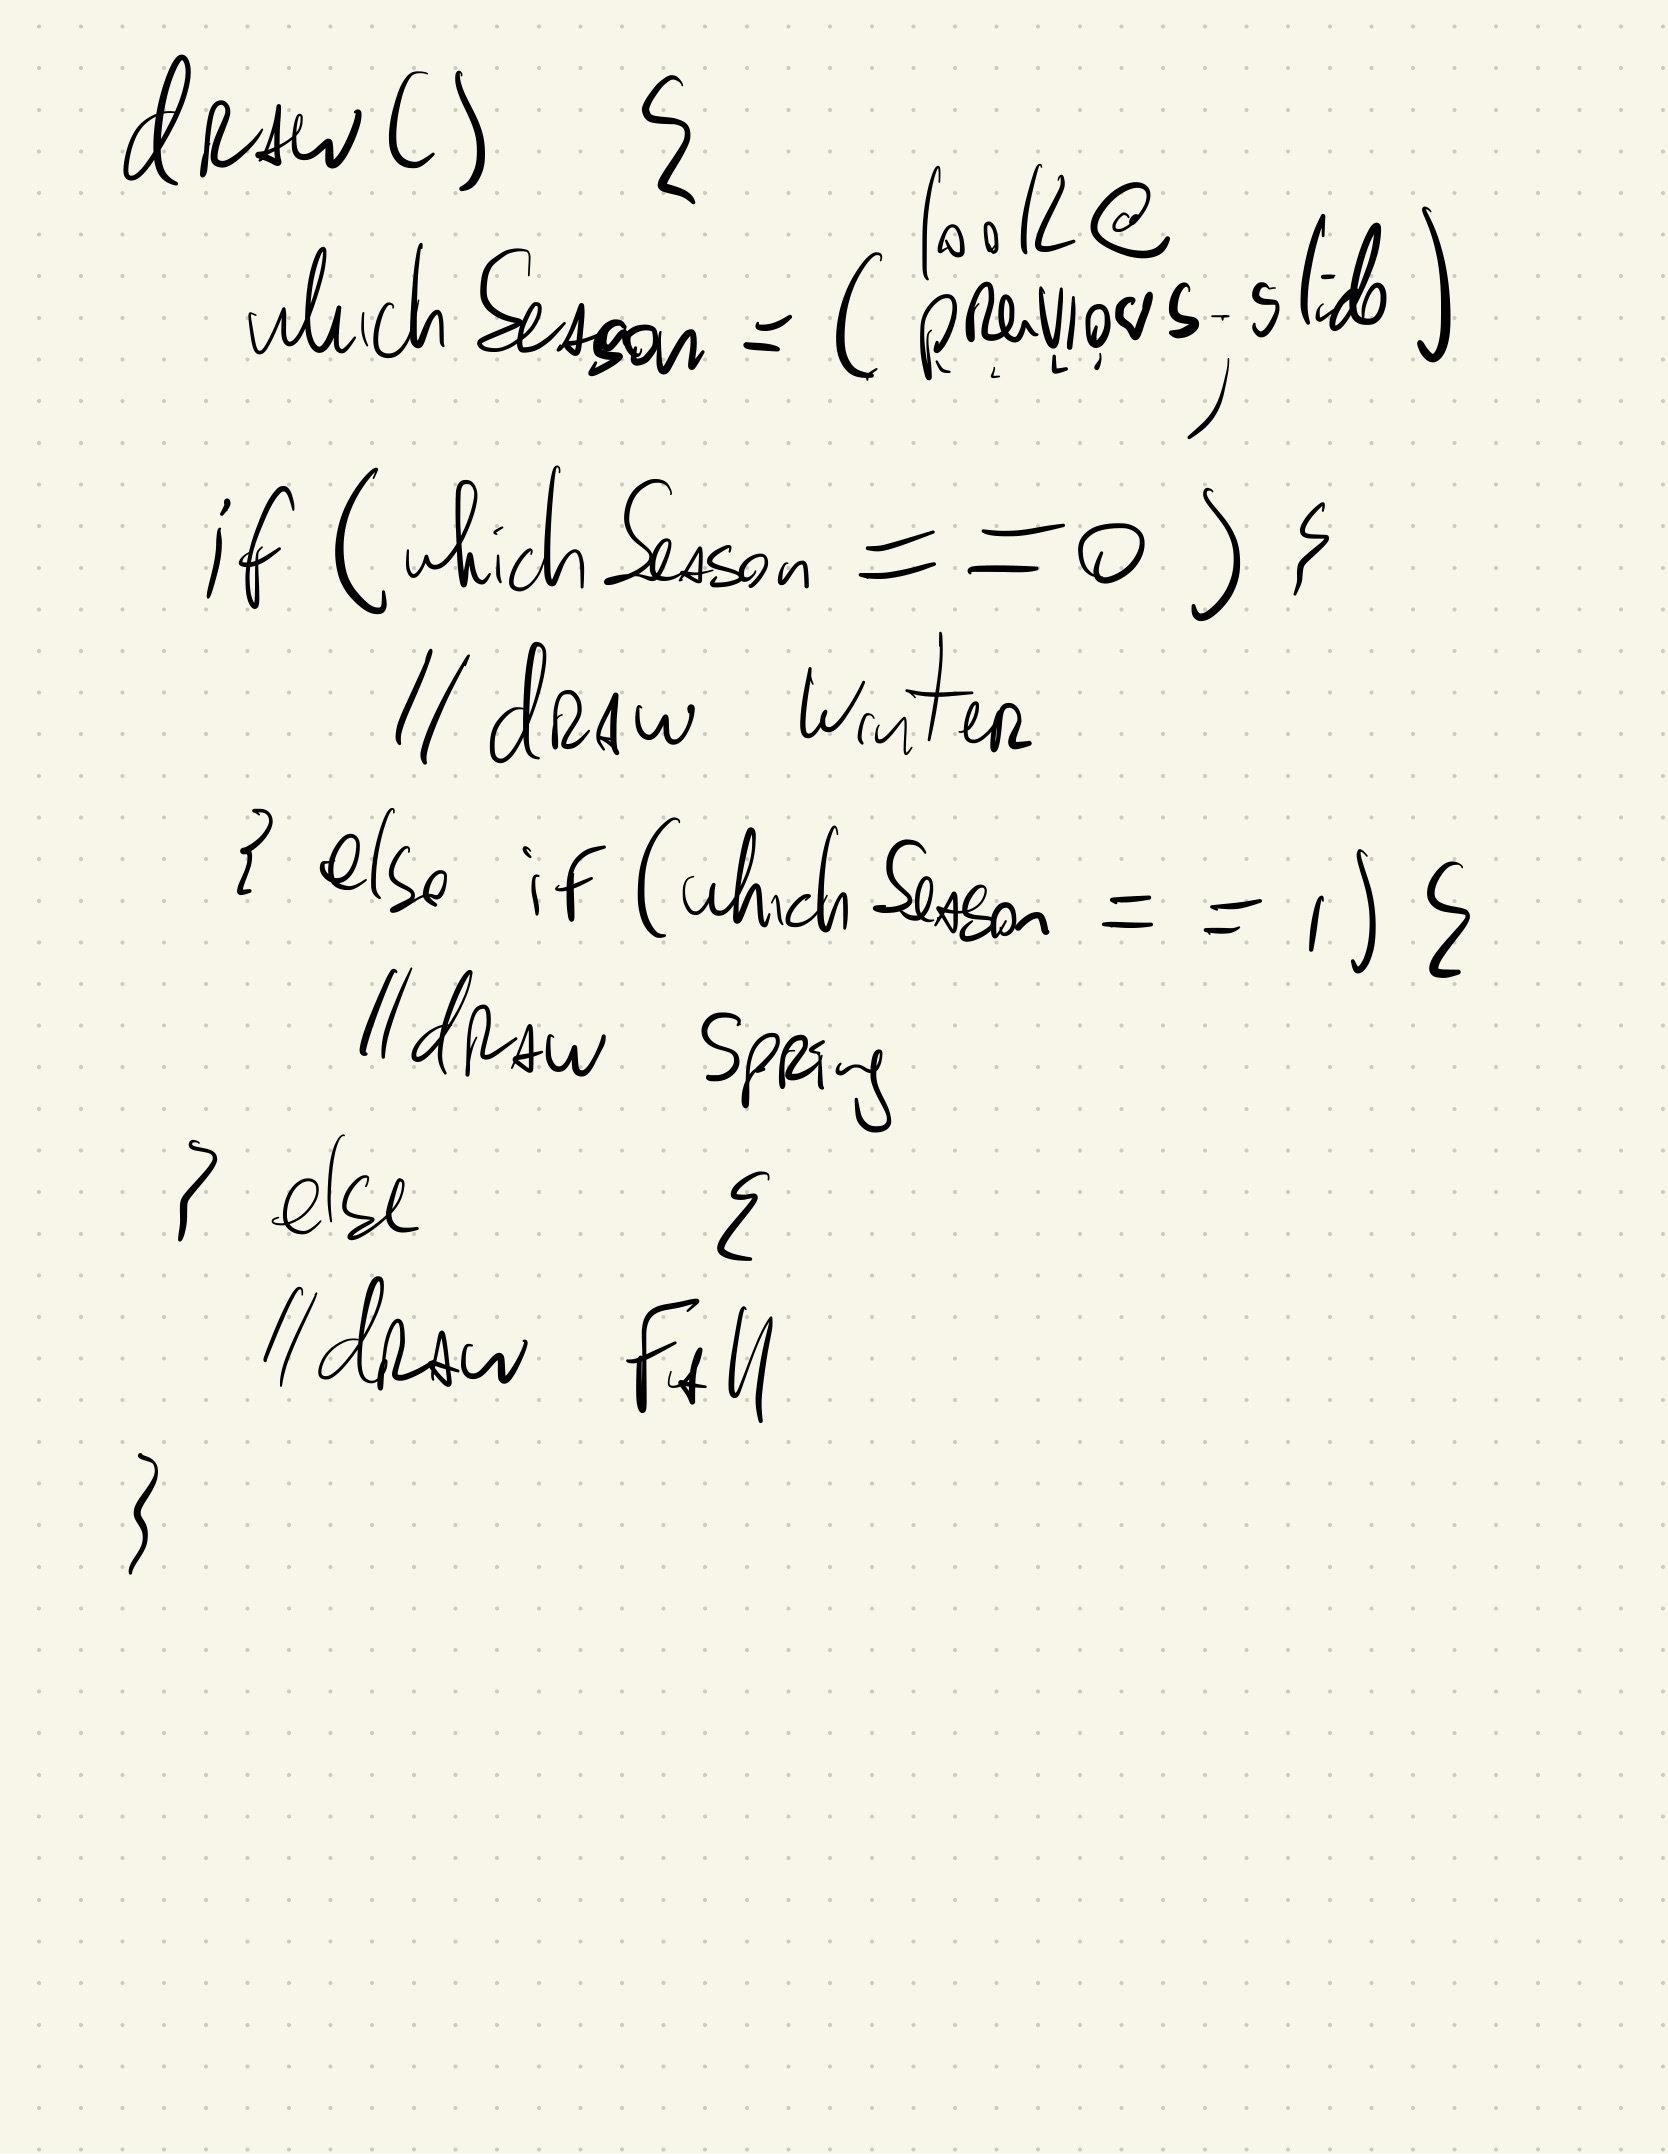 draw() {
look @
whichSeason = ( previous slide )
if (whichSeason == 0) {
// draw winter
} else if (whichSeason == 1) {
// draw Spring
} else {
// draw Fall
}